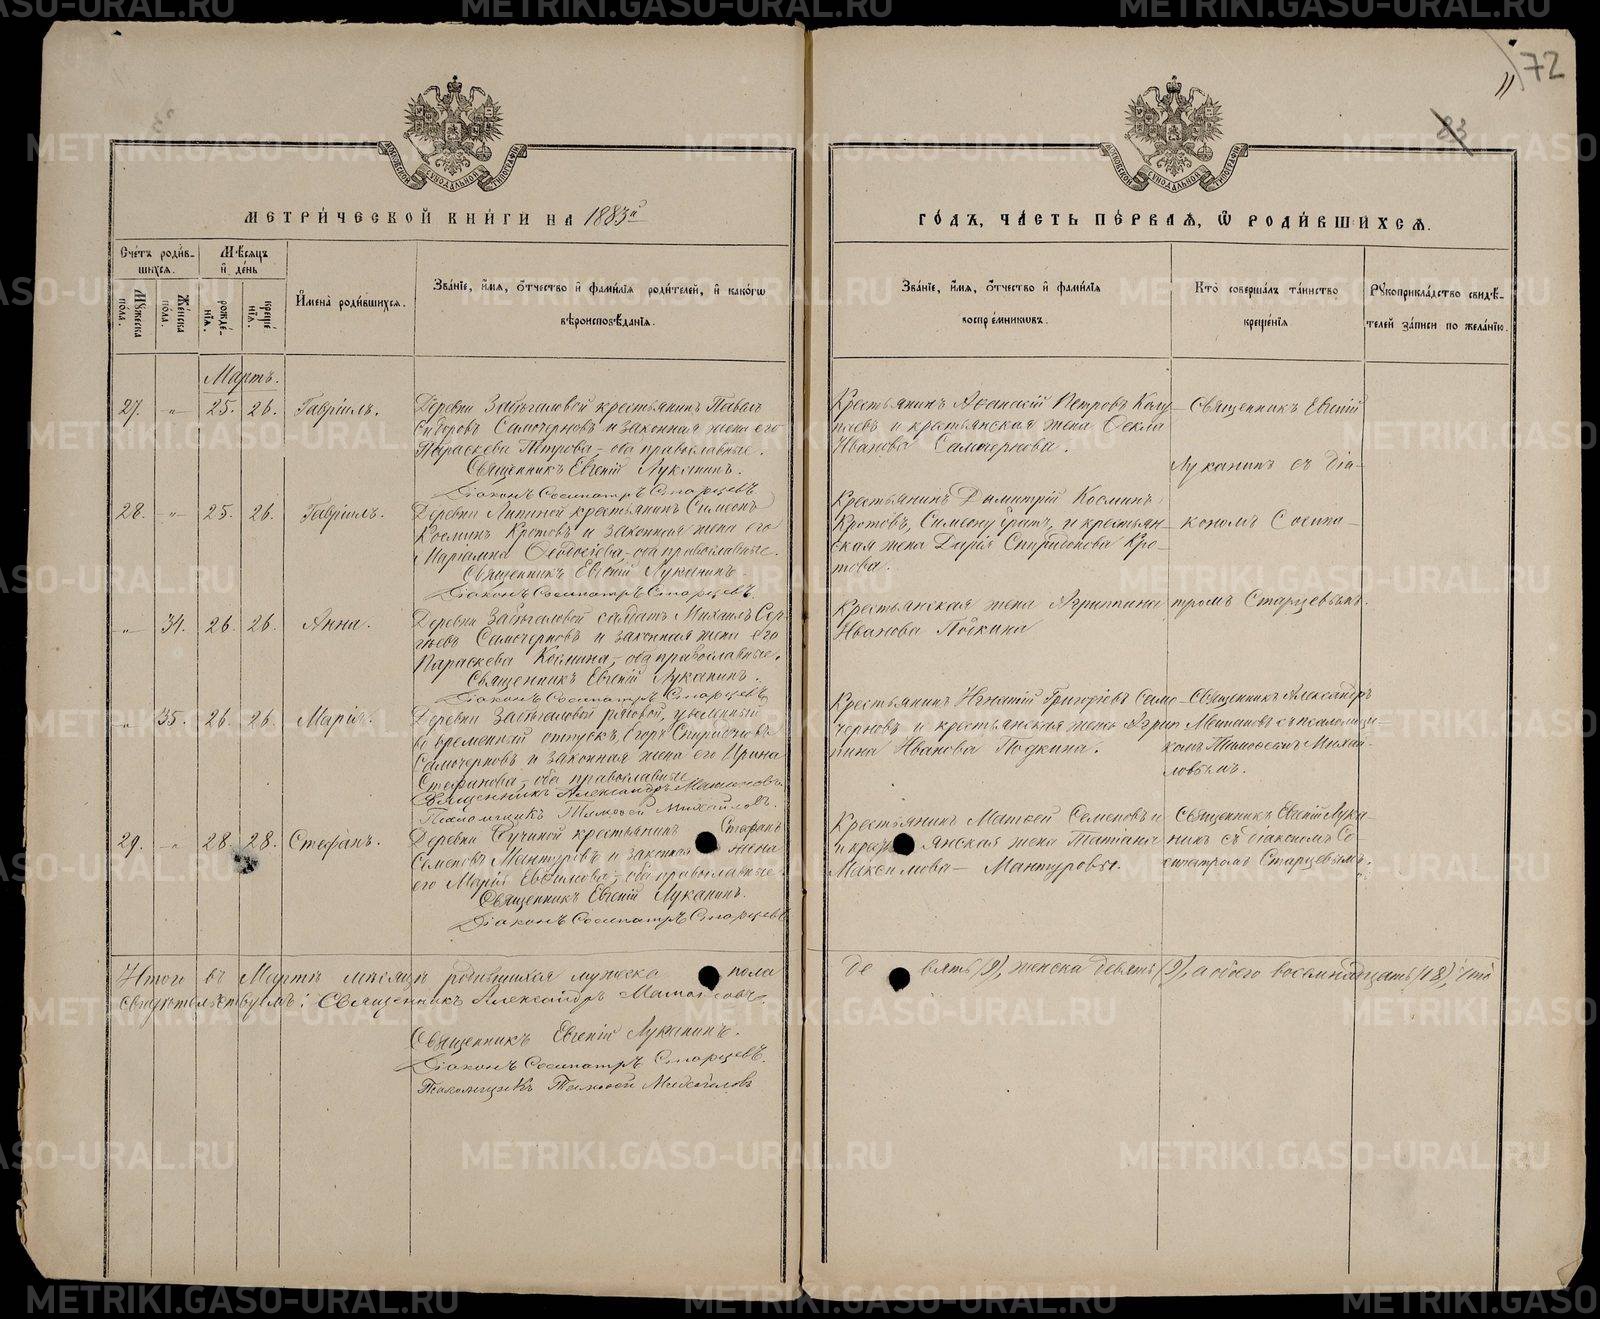 72
11
83
МОСКОВСКОЙ СѴНОДАЛЬНОЙ ТИПОГРАФІИ
МОСКОВСКОЙ СѴНОДАЛЬНОЙ ТИПОГРАФІИ
МЕТРИ́ЧЕСКОЙ КНИ́ГИ НА 1883й
ГО́ДЪ, ЧА́СТЬ ПЕ́РВАѦ, Ѡ РОДИ́ВШИХСѦ.
Сче́тъ роди́в-
шихся.
Мѣ́сяцъ
и҆ де́нь
Мꙋ́жеска по́ла.
Же́нска по́ла.
рожде́нїѧ.
креще́нїѧ.
И҆мена̀ роди́вшихся.
Зва́нїе, и҆́мя, ѻ҆́тчество и҆ фами́лїя роди́телей, и҆ како́гѡ
вѣроисповѣ́данїя.
Зва́нїе, и҆́мя, ѻ҆́тчество и҆ фами́лїя
воспрїе́мникѡвъ.
Кто̀ соверша́лъ та́инство
креще́нїя
Рꙋкоприкла́дство свидѣ́-
телей за́писи по жела́нїю.
Мартъ.
27. " 25. 26. Гавріилъ.
Деревни Забѣгаловой крестьянинъ Павелъ
Самочерновъ и законная жена его
Параскева Петрова – оба православные.
Священникъ Евгеній Луканинъ.
Діаконъ Сосипатръ Старцевъ
Крестьянинъ Аѳанасій Петровъ
и крестьянская жена Ѳекла
Иванова Самочернова.
Священникъ Евгеній
Луканинъ съ діа-
28. " 25. 26. Гавріилъ.
Деревни Липиной крестьянинъ Симеонъ
Косминъ Кротовъ и законная жена его
Маріамна Ѳеодосіева – оба православные.
Священникъ Евгеній Луканинъ.
Діаконъ Сосипатръ Старцевъ.
Крестьянинъ Дымитрій Косминъ
Кротовъ, Симеону братъ, и крестьян-
ская жена Дарія Спиридонова Кро-
това.
кономъ Сосипа-
" 34. 26. 26. Анна.
Деревни Забѣгаловой салдатъ Михаилъ Сер-
гѣевъ Самочерновъ и законная жена его
Параскева Космина, – оба православные.
Священникъ Евгеній Луканинъ.
Діаконъ Сосипатръ Старцевъ
Крестьянская жена Агриппина
Иванова
тромъ Старцевымъ.
" 35. 26. 26. Марія.
Деревни Забѣгаловой рядовой, уволенный
во временный отпускъ, Егоръ Спиридоновъ
Самочерновъ и законная жена его Ирина
Стефанова – оба православные
Священникъ Александръ
Псаломщикъ Тимоѳей Михайловъ.
Крестьянинъ Игнатій Григорьевъ Само-
черновъ и крестьянская жена Агрип
пина Иванова
Священникъ Александръ
съ псаломщи-
комъ Тимоѳеемъ Михай-
ловымъ.
29. " 28 28. Стефанъ.
Деревни крестьянинъ Стефанъ
Семеновъ Мантуровъ и законная жена
его Марія Евфимова – оба православные
Священникъ Евгеній Луканинъ.
Діаконъ Сосипатръ Старцевъ
Крестьянинъ Матѳей Семеновъ и
и крестьянская жена Татіана
Максимова – Мантуровы.
Священникъ Евгеній Лука-
нинъ съ діакономъ Со-
сипатромъ Старцевымъ.
Итого въ Мартѣ мѣсяцѣ родившихся мужеска пола
девять (9), женска девять (9), а обоего восемнадцать (18), что
свидѣтельствуемъ: Священникъ Александръ
Священникъ Евгеній Луканинъ.
Діаконъ Сосипатръ Старцевъ.
Псаломщикъ Тимоѳей Михайловъ
METRIKI.GASO-URAL.RU